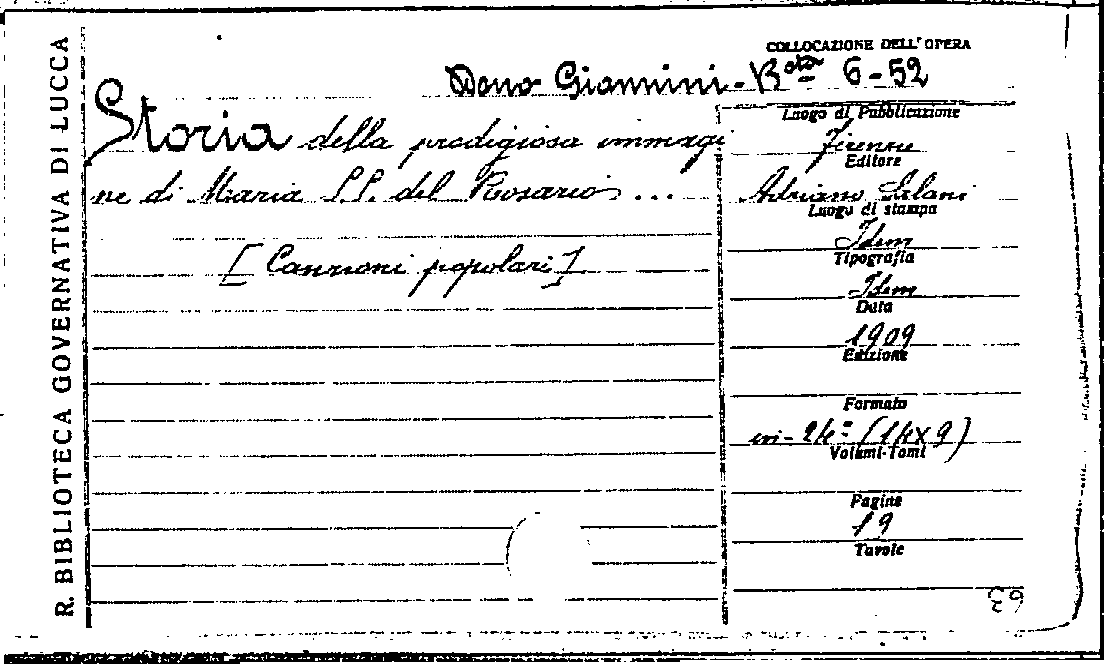 R. BIBLIOTECA GOVERNATIVA DI LUCCA
COLLOCAZIONE DELL'OPERA
Dono Giannini - Bta 6-52
Storia della prodigiosa immagi
ne di Maria SS. del Rosario ...
[Canzoni popolari]
Luogo di Pubblicazione
Firenze
Editore
Adriano Salani
Luogo di stampa
Idem
Tipografia
Idem
Data
1909
Edizione
Formato
in-24º (14x9)
Volumi-Tomi
Pagine
19
Tavole